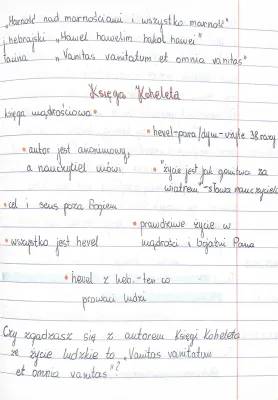 „Marność nad marnościami i wszystko marność"
j. hebrajski „Hawel hawelim hakol hawel"
łacina „Vanitas vanitatum et omnia vanitas"
Księga Koheleta
księga mądrościowa •
• hevel-para/dym-użyte 38 razy
• autor jest anonimowy,
a nauczyciel mówi
• "życie jest jak gonitwa za
wiatrem"-słowa nauczyciela
• cel i sens poza Bogiem
• prawdziwe życie w
mądrości i bojaźni Pana
• wszystko jest hevel
• hevel z heb.-ten co
prowadzi ludzi
Czy zgadzasz się z autorem Księgi Koheleta
że życie ludzkie to „Vanitas vanitatum
et omnia vanitas"?